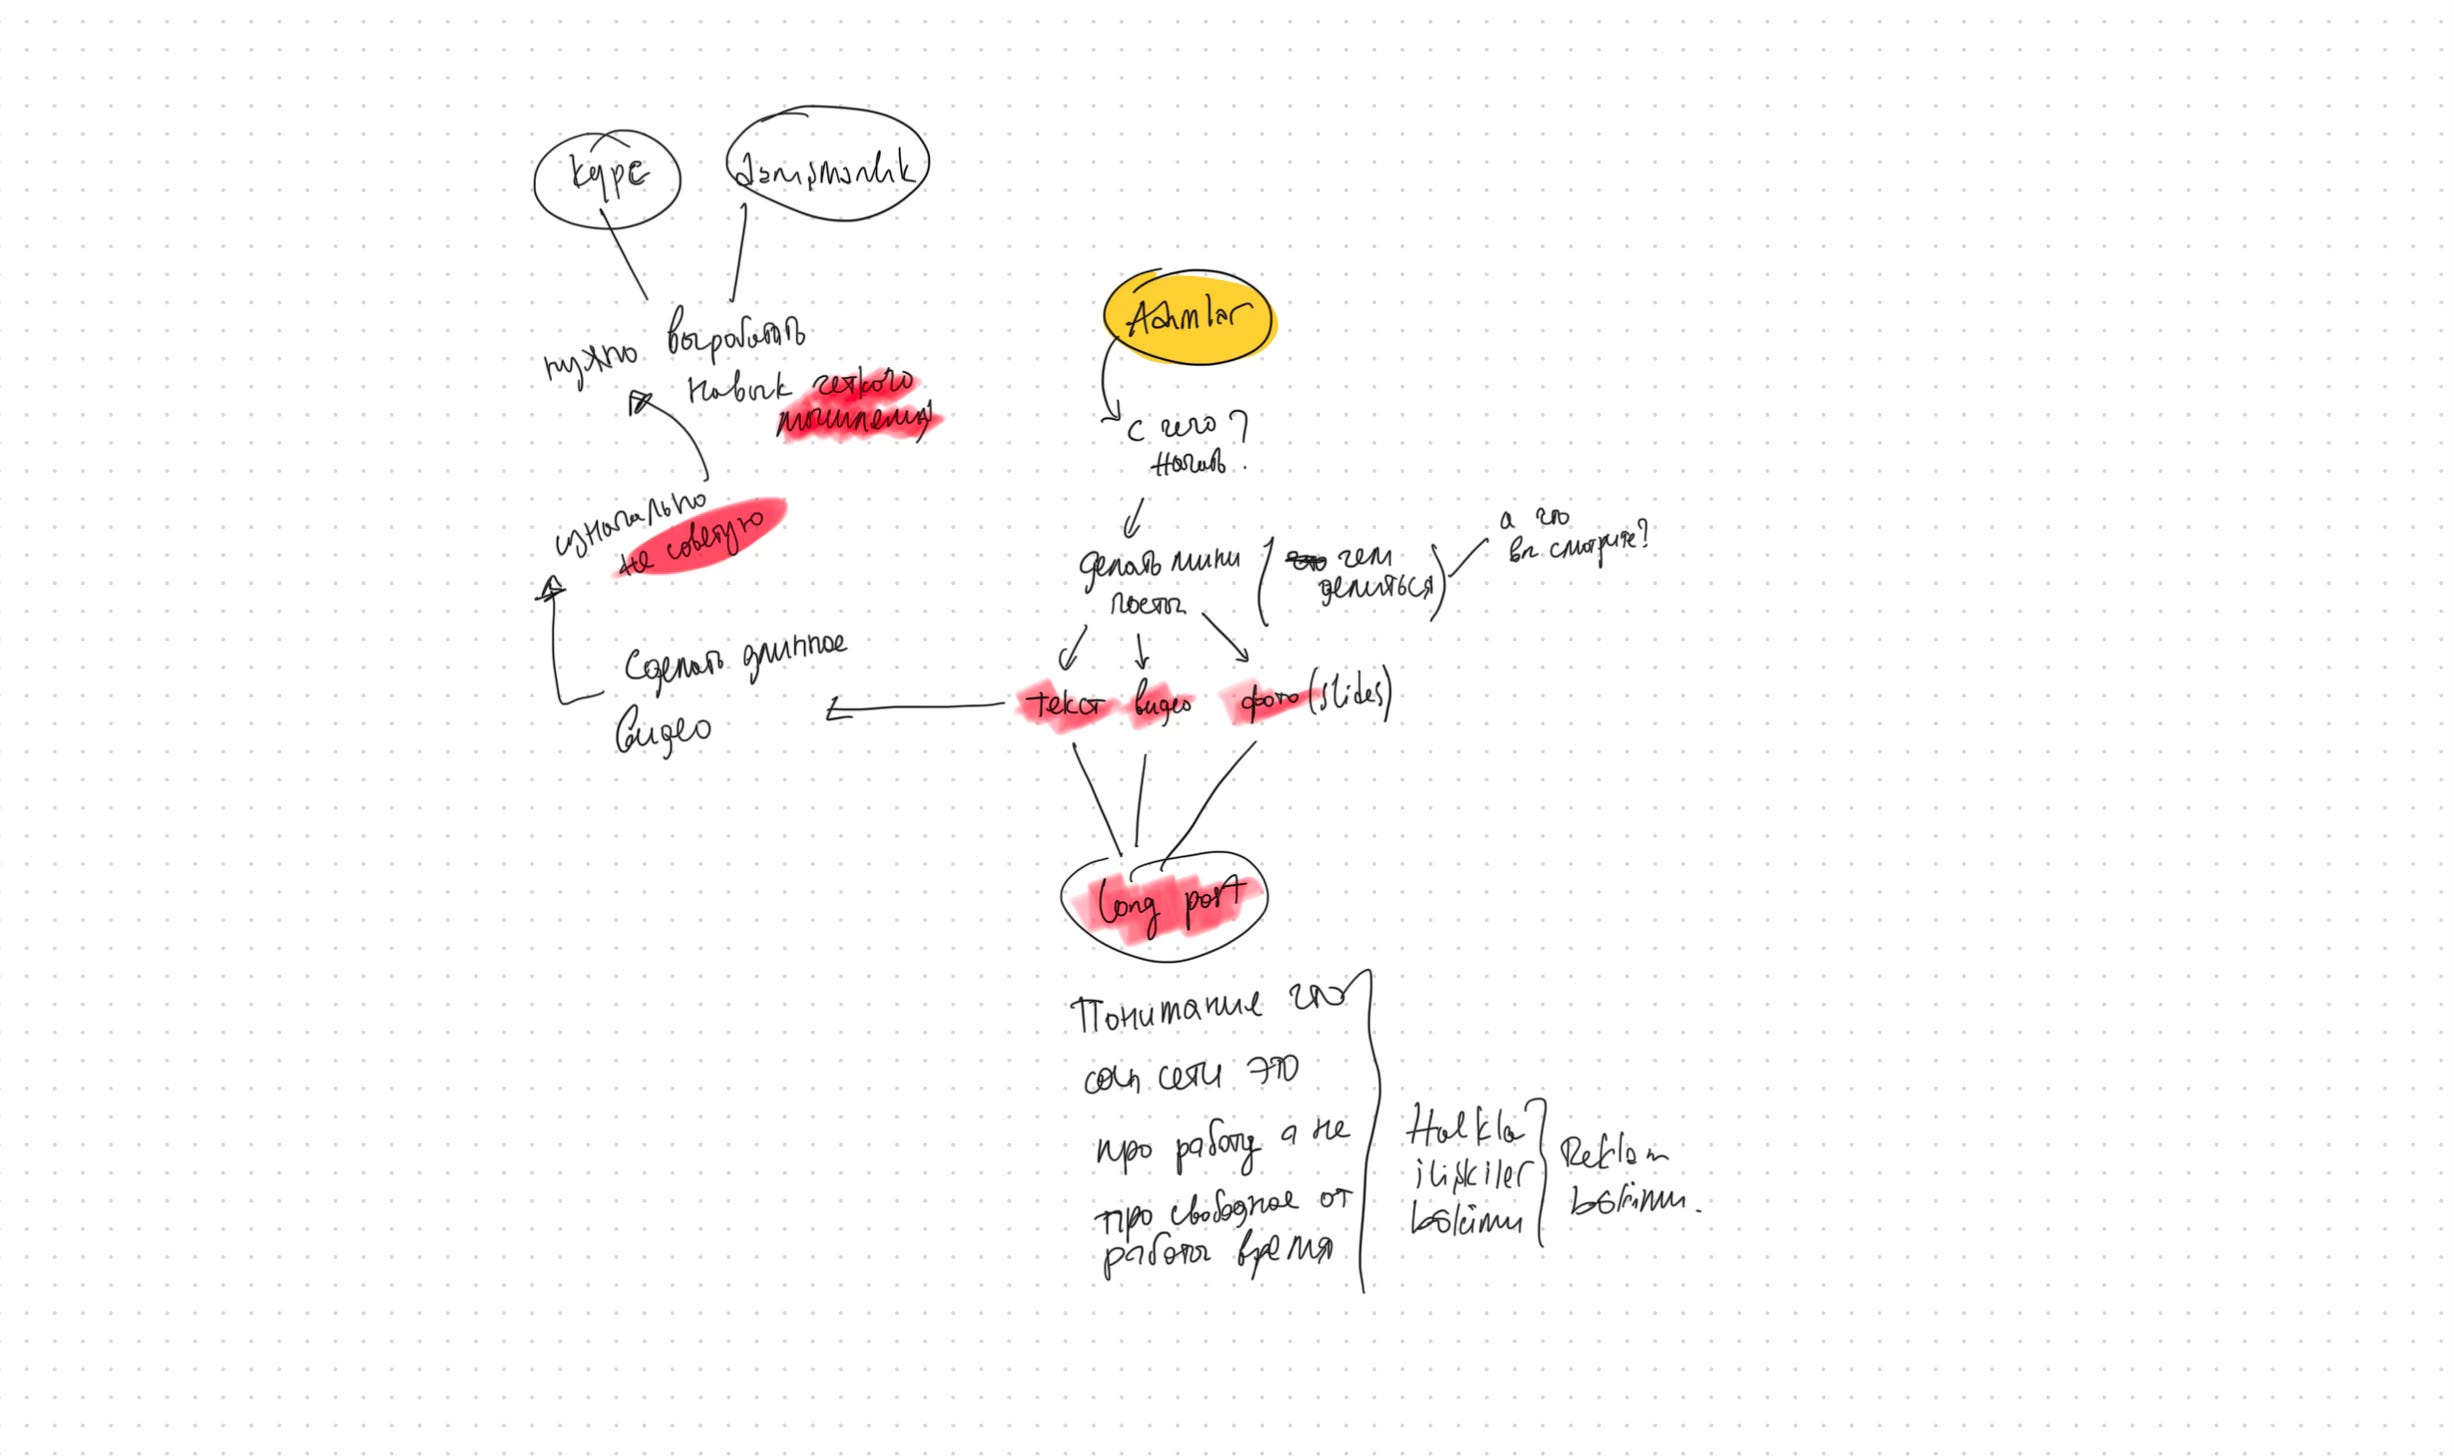 курс
danışmanlık
нужно выработать
навык четкого
мышления
изначально
не советую
Сделать длинное
видео
Adımlar
с чего ?
начать.
делать мини
посты
( чем
делиться)
а что
вы смотрите?
текст видео фото (slides)
Long post
Понимание что
соц сети это
про работу а не
про свободное от
работы время
Halkla
ilişkiler
bölümü
Reklam
bölümü.